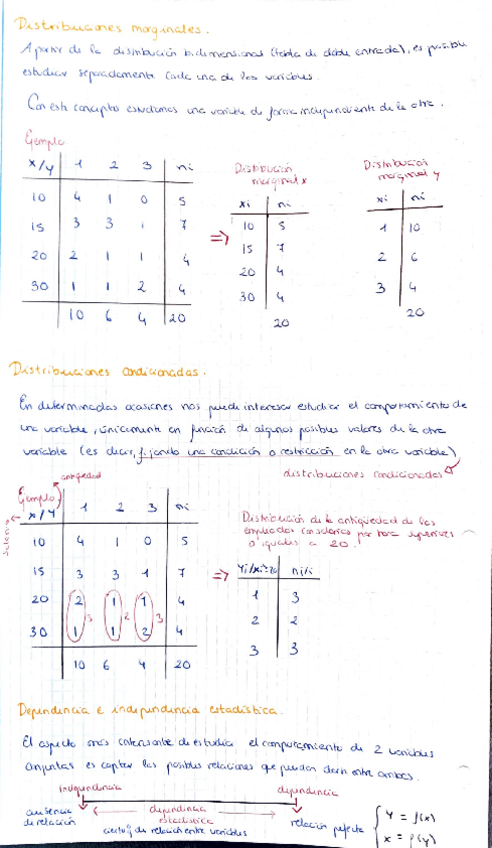 Distribuciones marginales.
A partir de la distribución bidimensional (tabla de doble entrada), es posible
estudiar separadamente cada una de las variables.
Con este concepto estudiamos una variable de forma independiente de la otra.
Ejemplo
x/y 1 2 3 ni
10 4 1 0 5
15 3 3 1 7
20 2 1 1 4
30 1 1 2 4
10 6 4 20
=>
Distribución
marginal x
xi ni
10 5
15 7
20 4
30 4
20
Distribución
marginal y
xi ni
1 10
2 6
3 4
20
Distribuciones condicionadas.
En determinadas ocasiones nos puede interesar estudiar el comportamiento de
una variable, únicamente en función de algunos posibles valores de la otra
variable (es decir, fijando una condición o restricción en la otra variable)
distribuciones condicionadas
antigüedad
Ejemplo
Salario
x/y 1 2 3 ni
10 4 1 0 5
15 3 3 1 7
20 2 1 1 4
30 1 1 2 4
3 2 3
10 6 4 20
=>
Distribución de la antigüedad de los
empleados con salarios por hora superiores
o iguales a 20.
Yi/xi≥20 ni/i
1 3
2 2
3 3
Dependencia e independencia estadística.
El aspecto más interesante de estudiar el comportamiento de 2 variables
conjuntas es captar las posibles relaciones que puedan darse entre ambas.
independencia dependencia
ausencia
de relación
dependencia
estadística
cierto g de relación entre variables
relación perfecta
y = f(x)
x = f(y)